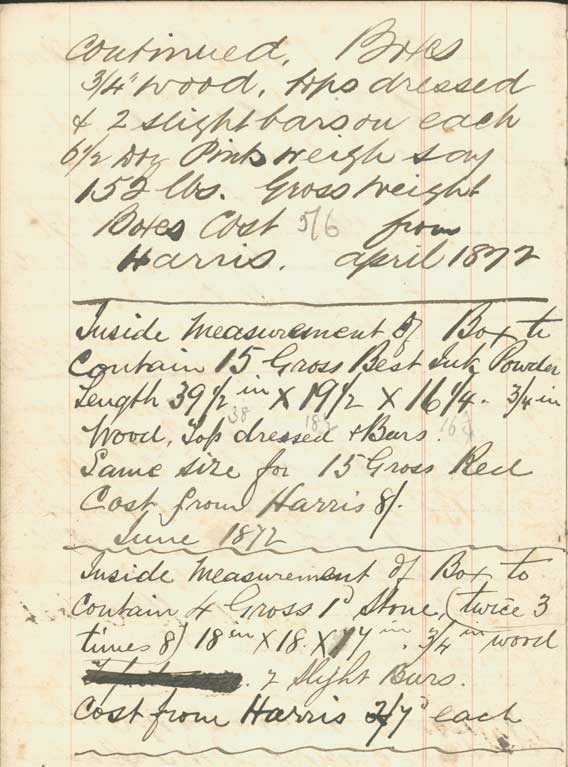 continued. Boxes
3/4" wood, tops dressed
& 2 slight bars on each
6 1/2 Doz Pints weigh say
152 lbs. Gross weight
Boxes Cost 5/6 from
Harris. april 1872
Inside Measurement of Box to
Contain 15 Gross Best Ink Powder
Length 39 1/2 in X 19 1/2 X 16 1/4. 3/4 in
38
Wood, Top dressed & Bars.
Same size for 15 Gross Red
Cost from Harris 8/.
June 1872
Inside Measurement of Box to
Contain 4 Gross 1d Stone, (twice 3
times 8) 18 in X 18. X 17 in. 3/4 in wood
2 Slight Bars.
Cost from Harris 2/7d each